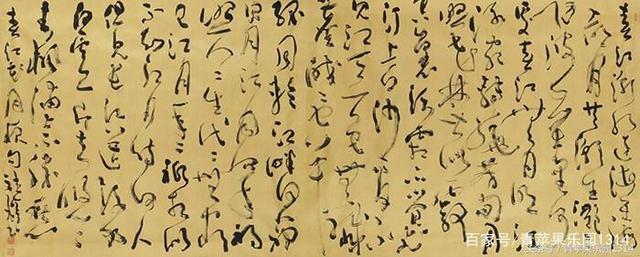 春江潮水連海平海
上明月共潮生灩灩
隨波千万里何
處春江無月明江
流宛轉繞芳甸月
照花林皆似霰
空裏流霜不覺飛
汀上白沙看不
見江天一色無纖
塵皎皎空中
孤月輪江畔何人初
見月江月何年初
照人人生代代無窮
已江月年年祇相似
不知江月待何人
但見長江送流水
白雲一片去悠悠
青楓浦上不勝愁
春江花月夜句
百家号/青苹果乐园1314